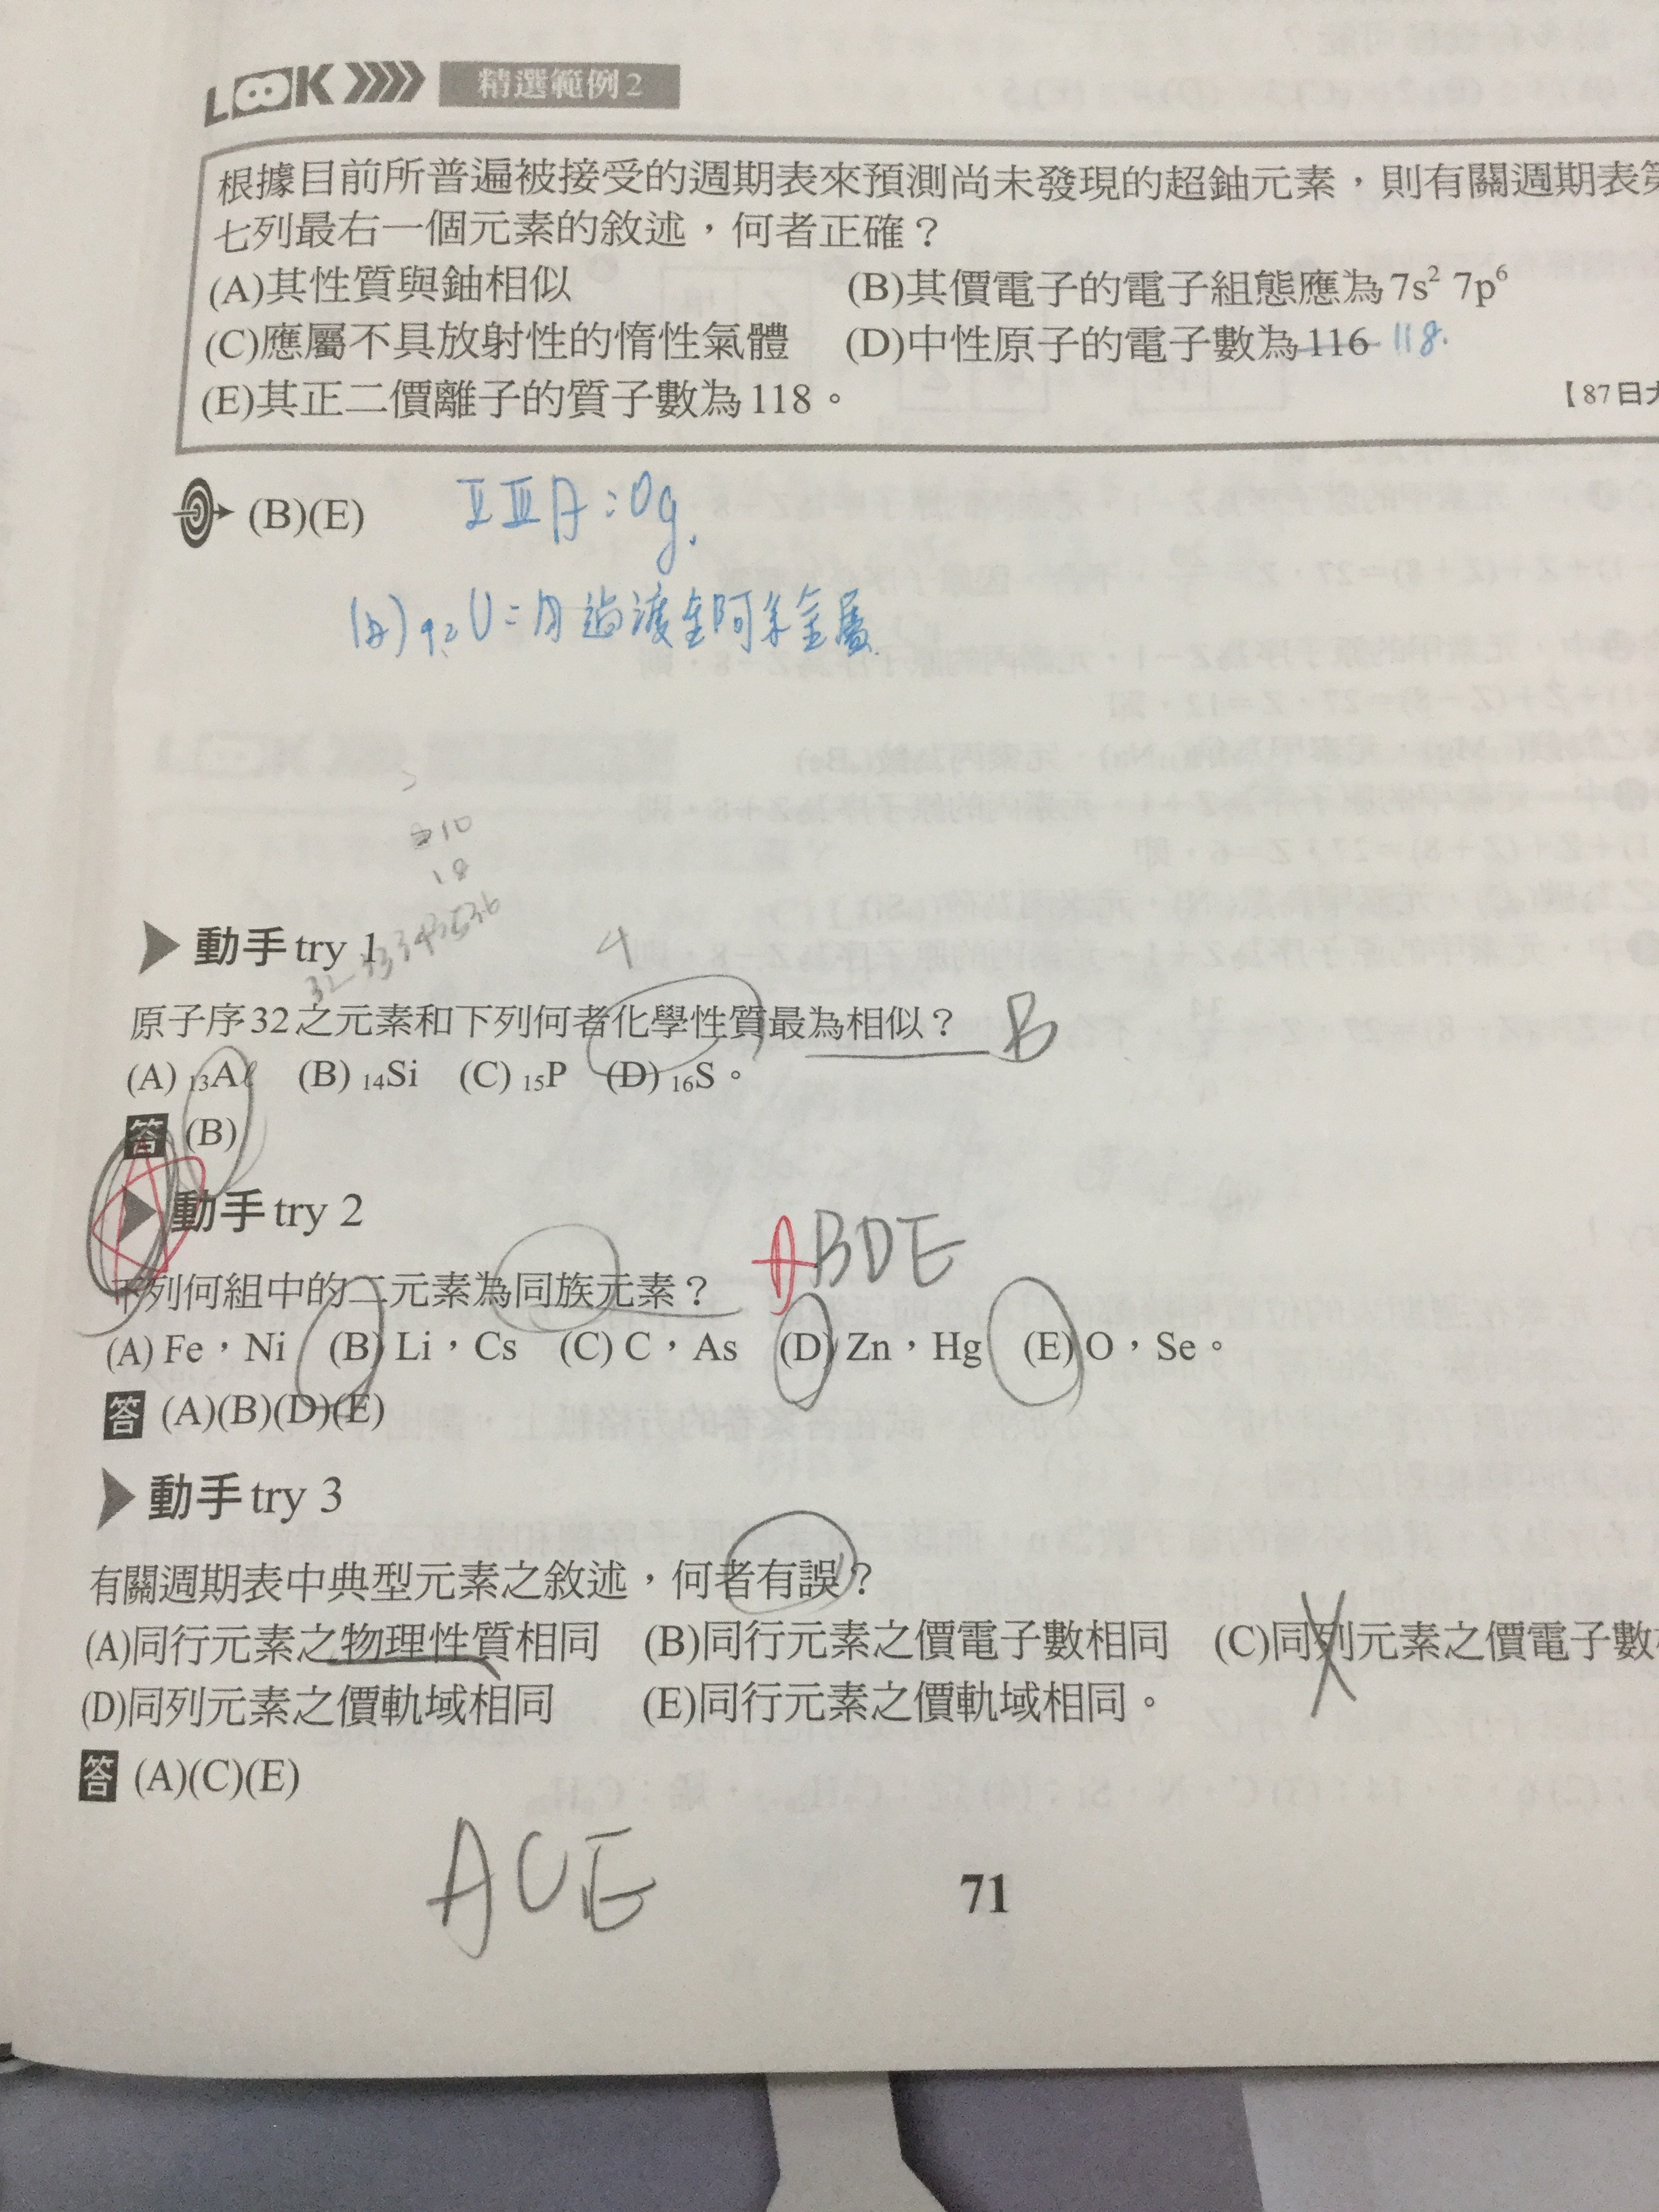 LOOK 精選範例2
根據目前所普遍被接受的週期表來預測尚未發現的超鈾元素，則有關週期表第
七列最右一個元素的敘述，何者正確？
(A)其性質與鈾相似 (B)其價電子的電子組態應為7s² 7p⁶
(C)應屬不具放射性的惰性氣體 (D)中性原子的電子數為116 118.
(E)其正二價離子的質子數為118。 【87日大
(B)(E)
(A) 92U=內過渡金阿系金屬
10
18
32 33 34 35 36
動手try 1
4
原子序32之元素和下列何者化學性質最為相似？ B
(A) ₁₃Aℓ (B) ₁₄Si (C) ₁₅P (D) ₁₆S。
答 (B)
動手try 2
ABDE
下列何組中的二元素為同族元素？
(A) Fe，Ni (B) Li，Cs (C) C，As (D) Zn，Hg (E) O，Se。
答 (A)(B)(D)(E)
動手try 3
有關週期表中典型元素之敘述，何者有誤？
(A)同行元素之物理性質相同 (B)同行元素之價電子數相同 (C)同列元素之價電子數
(D)同列元素之價軌域相同 (E)同行元素之價軌域相同。
答 (A)(C)(E)
ACE
71